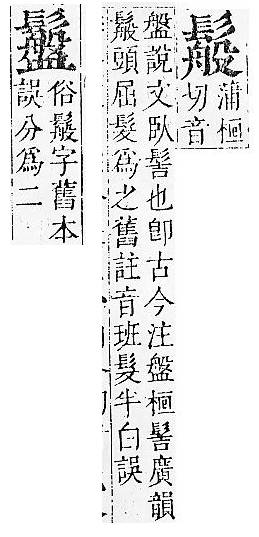 鬆蒲桓
切音
盤說文臥髻也卽古今注盤桓髻廣韻
鬆頭屈髮爲之舊註音班髮半白誤
鬆俗鬆字舊本
誤分爲二